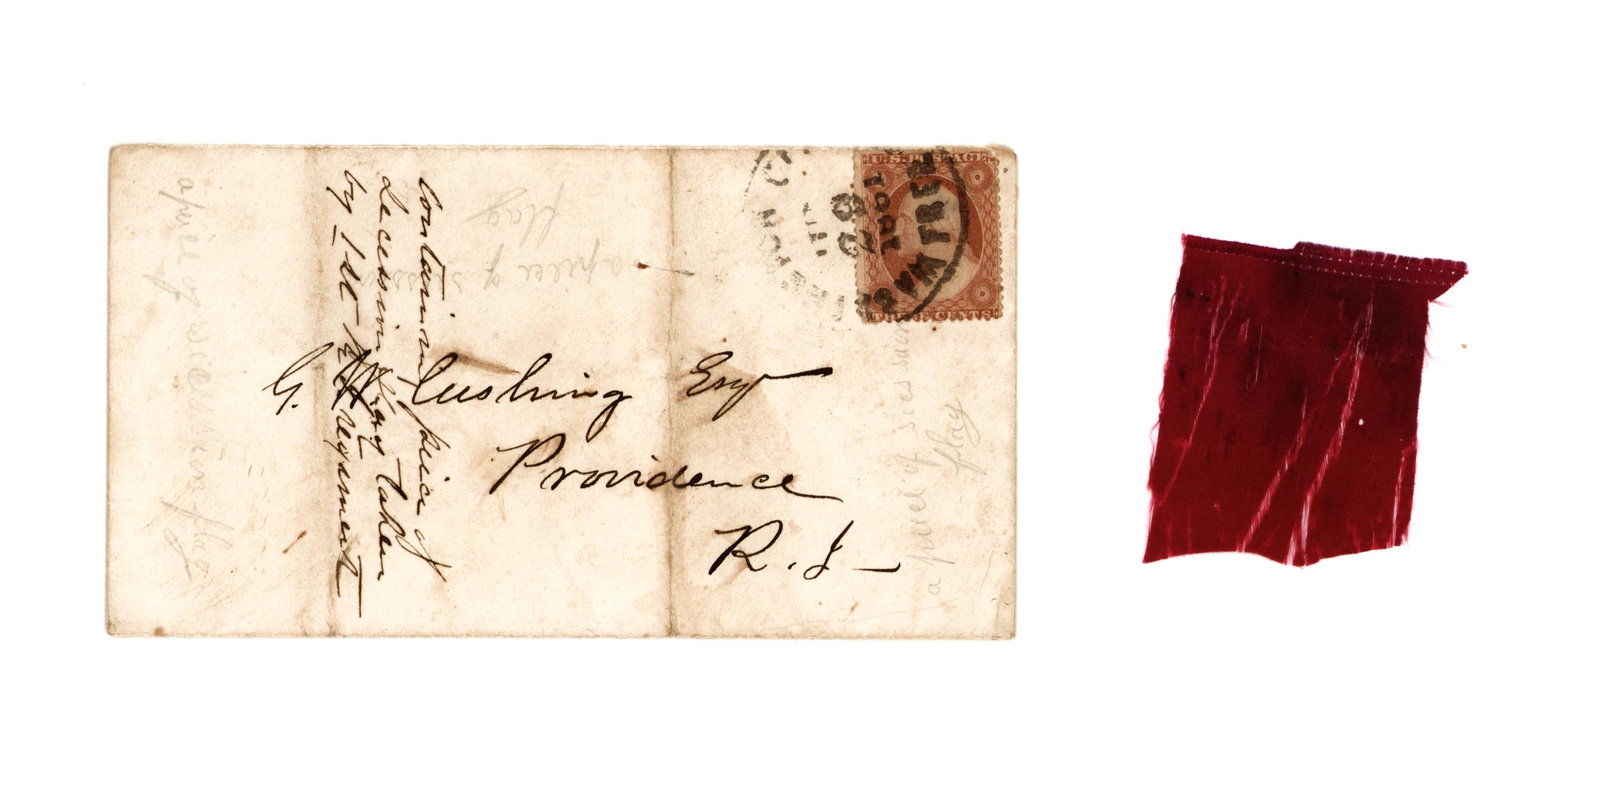 G. W. Cushing Esqr
Providence
R. I.
Containing piece of
Secession Flag taken
by 1st R I Regiment
U.S. POSTAGE
THREE CENTS
WASHINGTON CITY
FREE
JUL
23
1861
a piece of secession flag
a piece of
flag
a piece of secession
flag